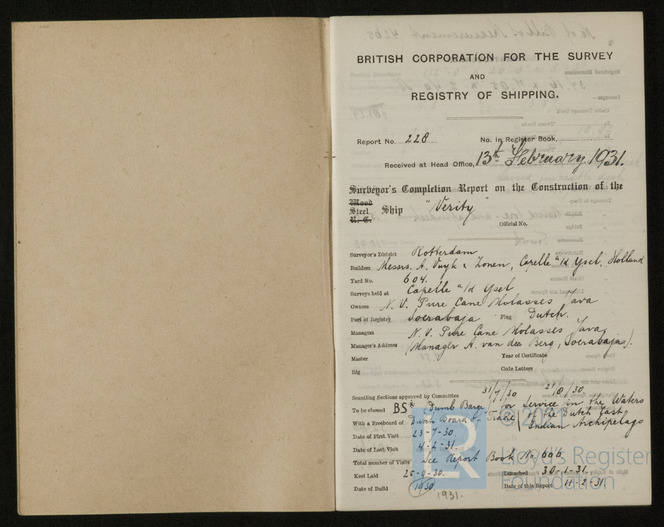 BRITISH CORPORATION FOR THE SURVEY
AND
REGISTRY OF SHIPPING.
Report No. 228 No. in Register Book,
Received at Head Office, 13th February 1931.
Surveyor's Completion Report on the Construction of the
Wood
Steel Ship "Verity"
Official No.
Surveyor's District Rotterdam
Builders Messrs. A. Vuyk & Zonen, Capelle a/d Ysel, Holland
Yard No. 604.
Surveys held at Capelle a/d Ysel
Owners N. V. Pure Cane Molasses Java
Port of Registry Soerabaja Flag Dutch.
Managers N. V. Pure Cane Molasses Java
Manager's Address (Manager A. van den Berg, Soerabaja).
Master Year of Certificate
Rig Code Letters
Scantling Sections approved by Committee 31/7/30
To be classed BS* Dumb Barge for Service in the Waters
With a Freeboard of of the Dutch East
Date of First Visit 23-7-30. Indian Archipelago
Date of Last Visit 4-2-31.
Total number of Visits See Report Book No. 606
Keel Laid Launched 30-1-31.
Date of Build 1930 Date of this Report 11-2-31.
1931.
LR
Lloyd's Register
Foundation